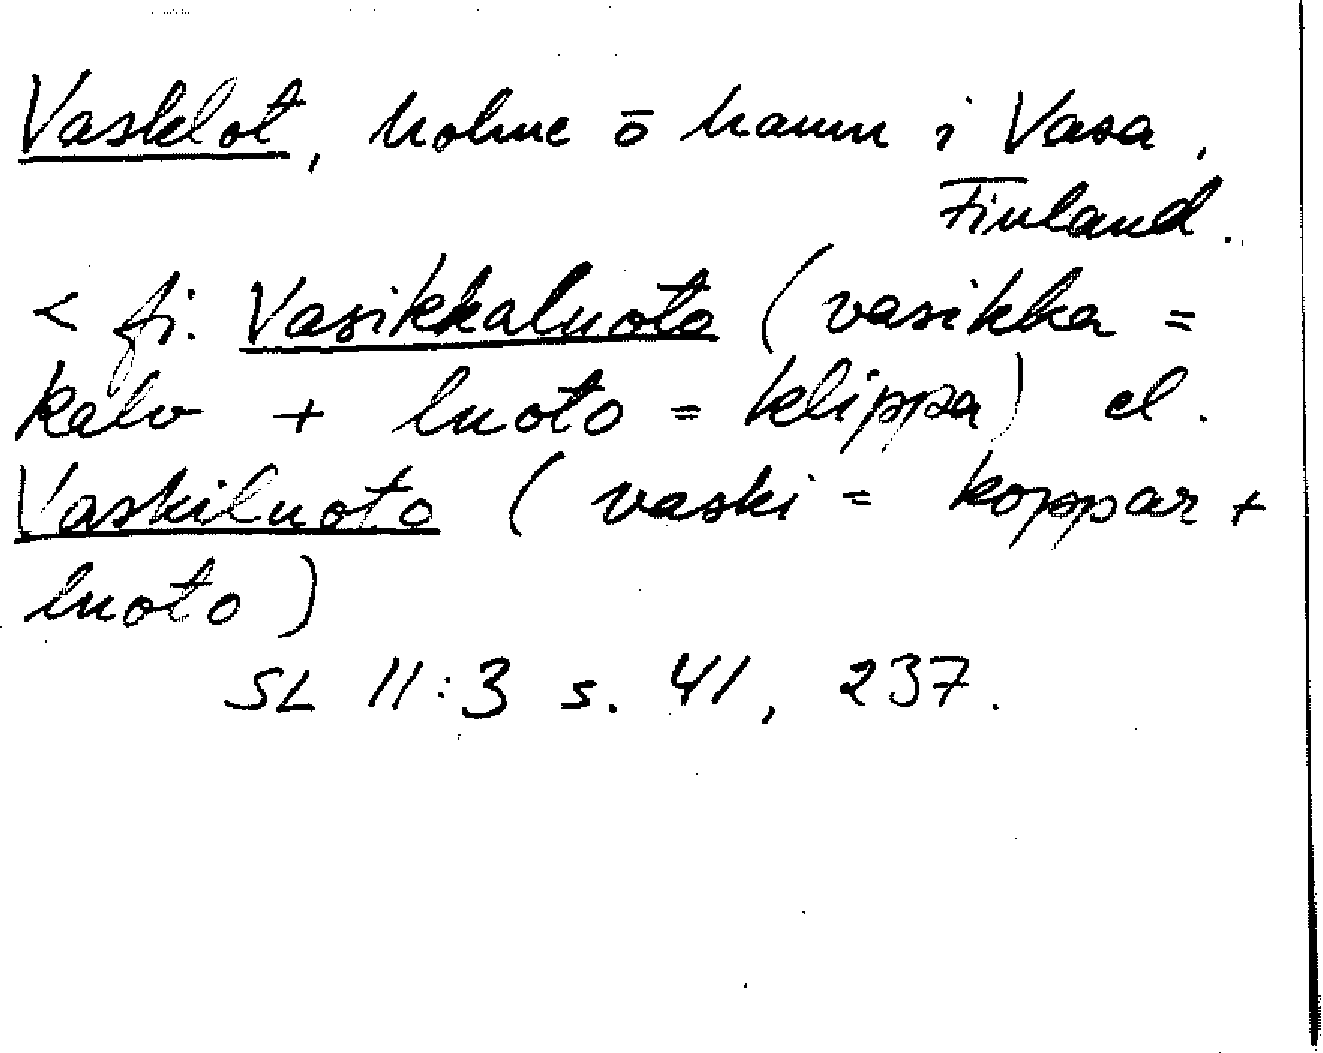 Vasklot, holme ō hamn i Vasa,
Finland.
< fi. Vasikkaluoto (vasikka =
kalv + luoto = klippa) el.
Vaskiluoto (vaski = koppar +
luoto)
SL 11:3 s. 41, 237.